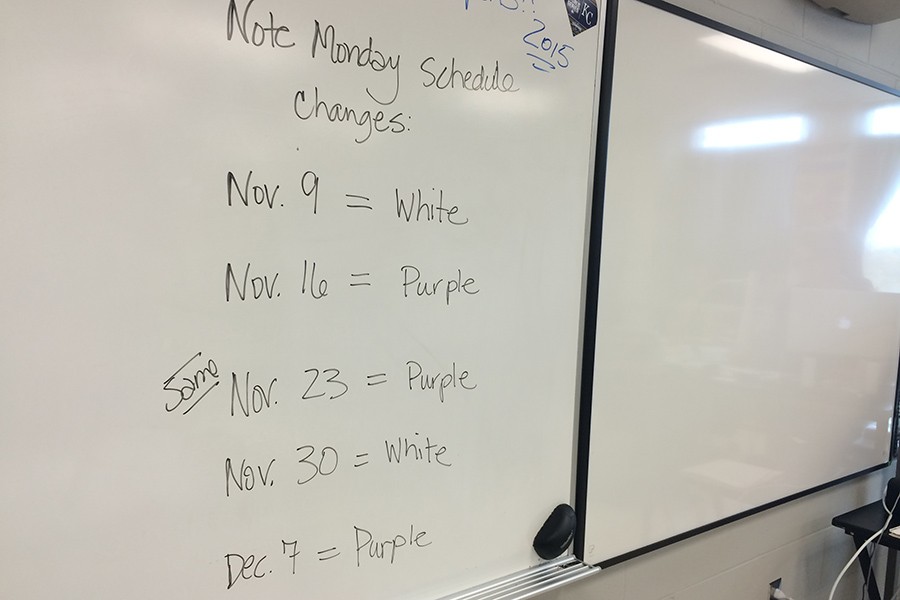 2015
KC
Note Monday Schedule
Changes:
Nov. 9 = White
Nov. 16 = Purple
Same Nov. 23 = Purple
Nov. 30 = White
Dec. 7 = Purple